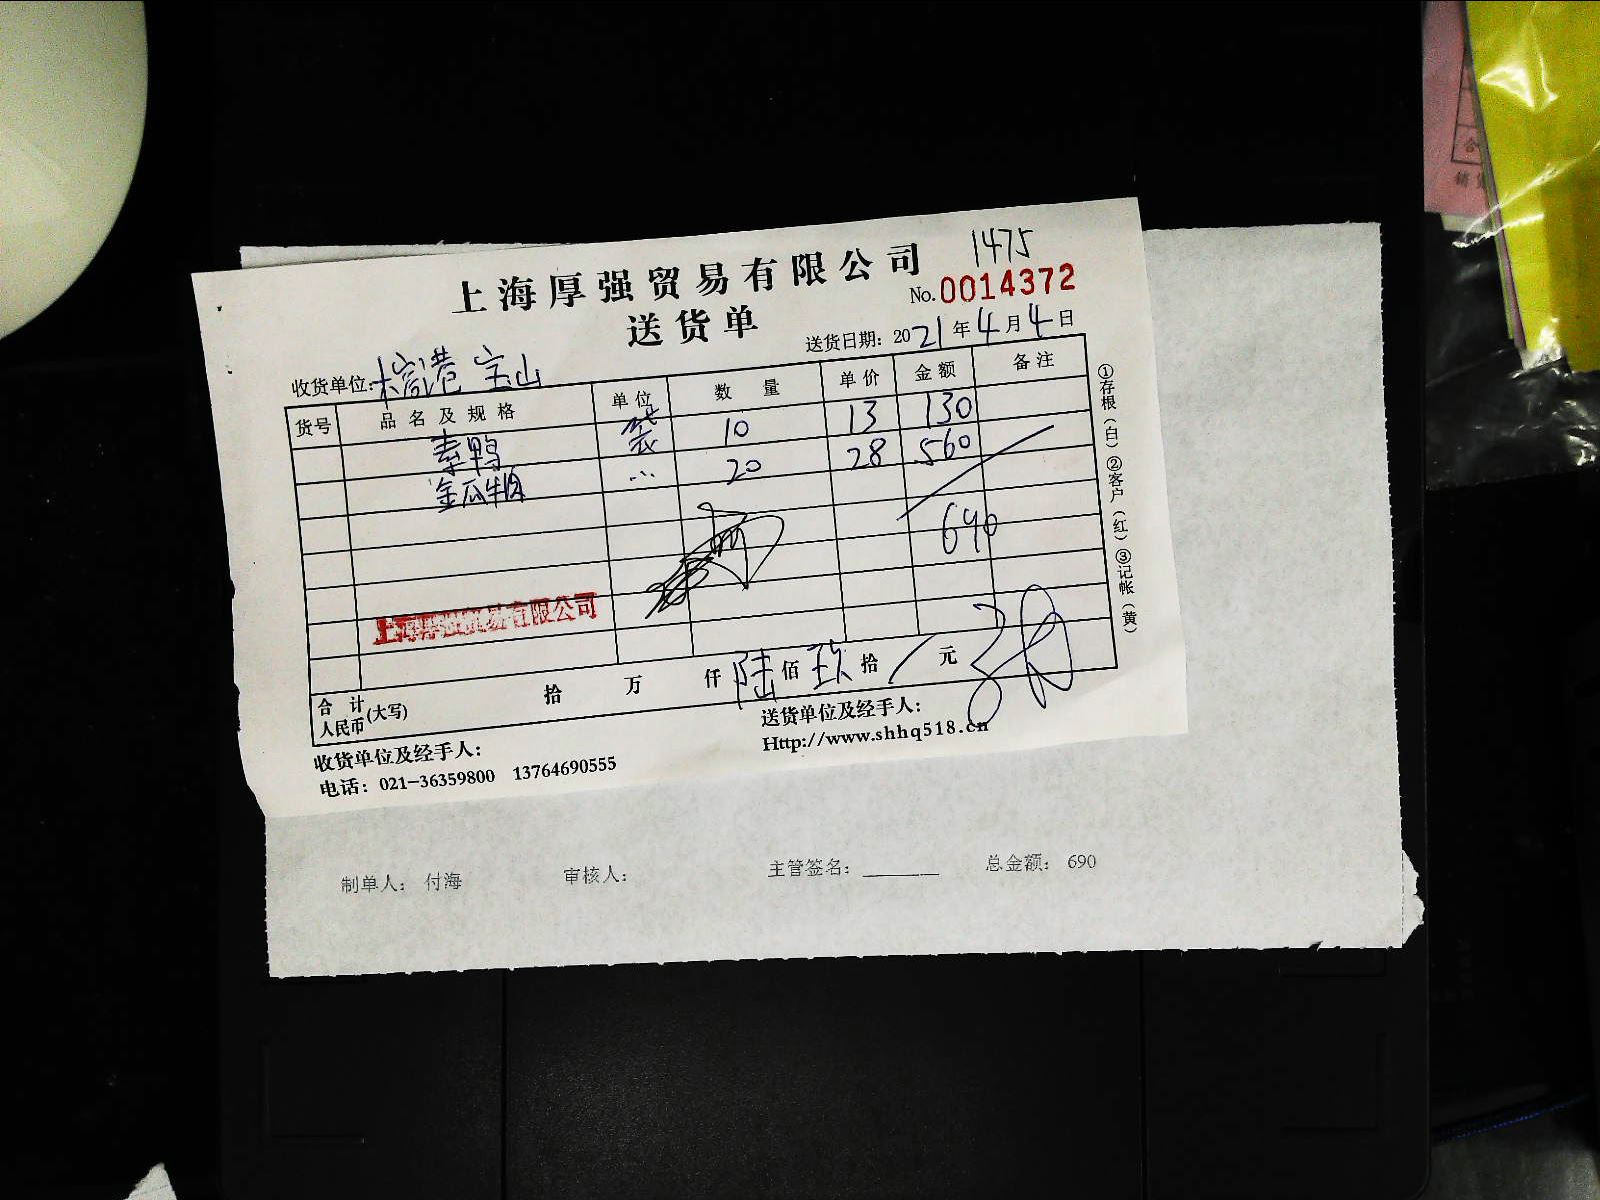 上海厚强贸易有限公司
1475
No.0014372
送货单
送货日期: 2021年4月4日
收货单位: 檽港 宝山
货号 品名及规格 单位 数量 单价 金额 备注
素鸭 袋 10 13 130
金瓜牛肉 〃 20 28 560
690
上海厚强贸易有限公司
合计人民币(大写) 拾 万 仟 陆 佰 玖 拾 / 元
收货单位及经手人:
送货单位及经手人:
电话: 021-36359800 13764690555
Http://www.shhq518.cn
①存根(白)②客户(红)③记帐(黄)
制单人: 付海 审核人: 主管签名: ________ 总金额: 690
合
销货